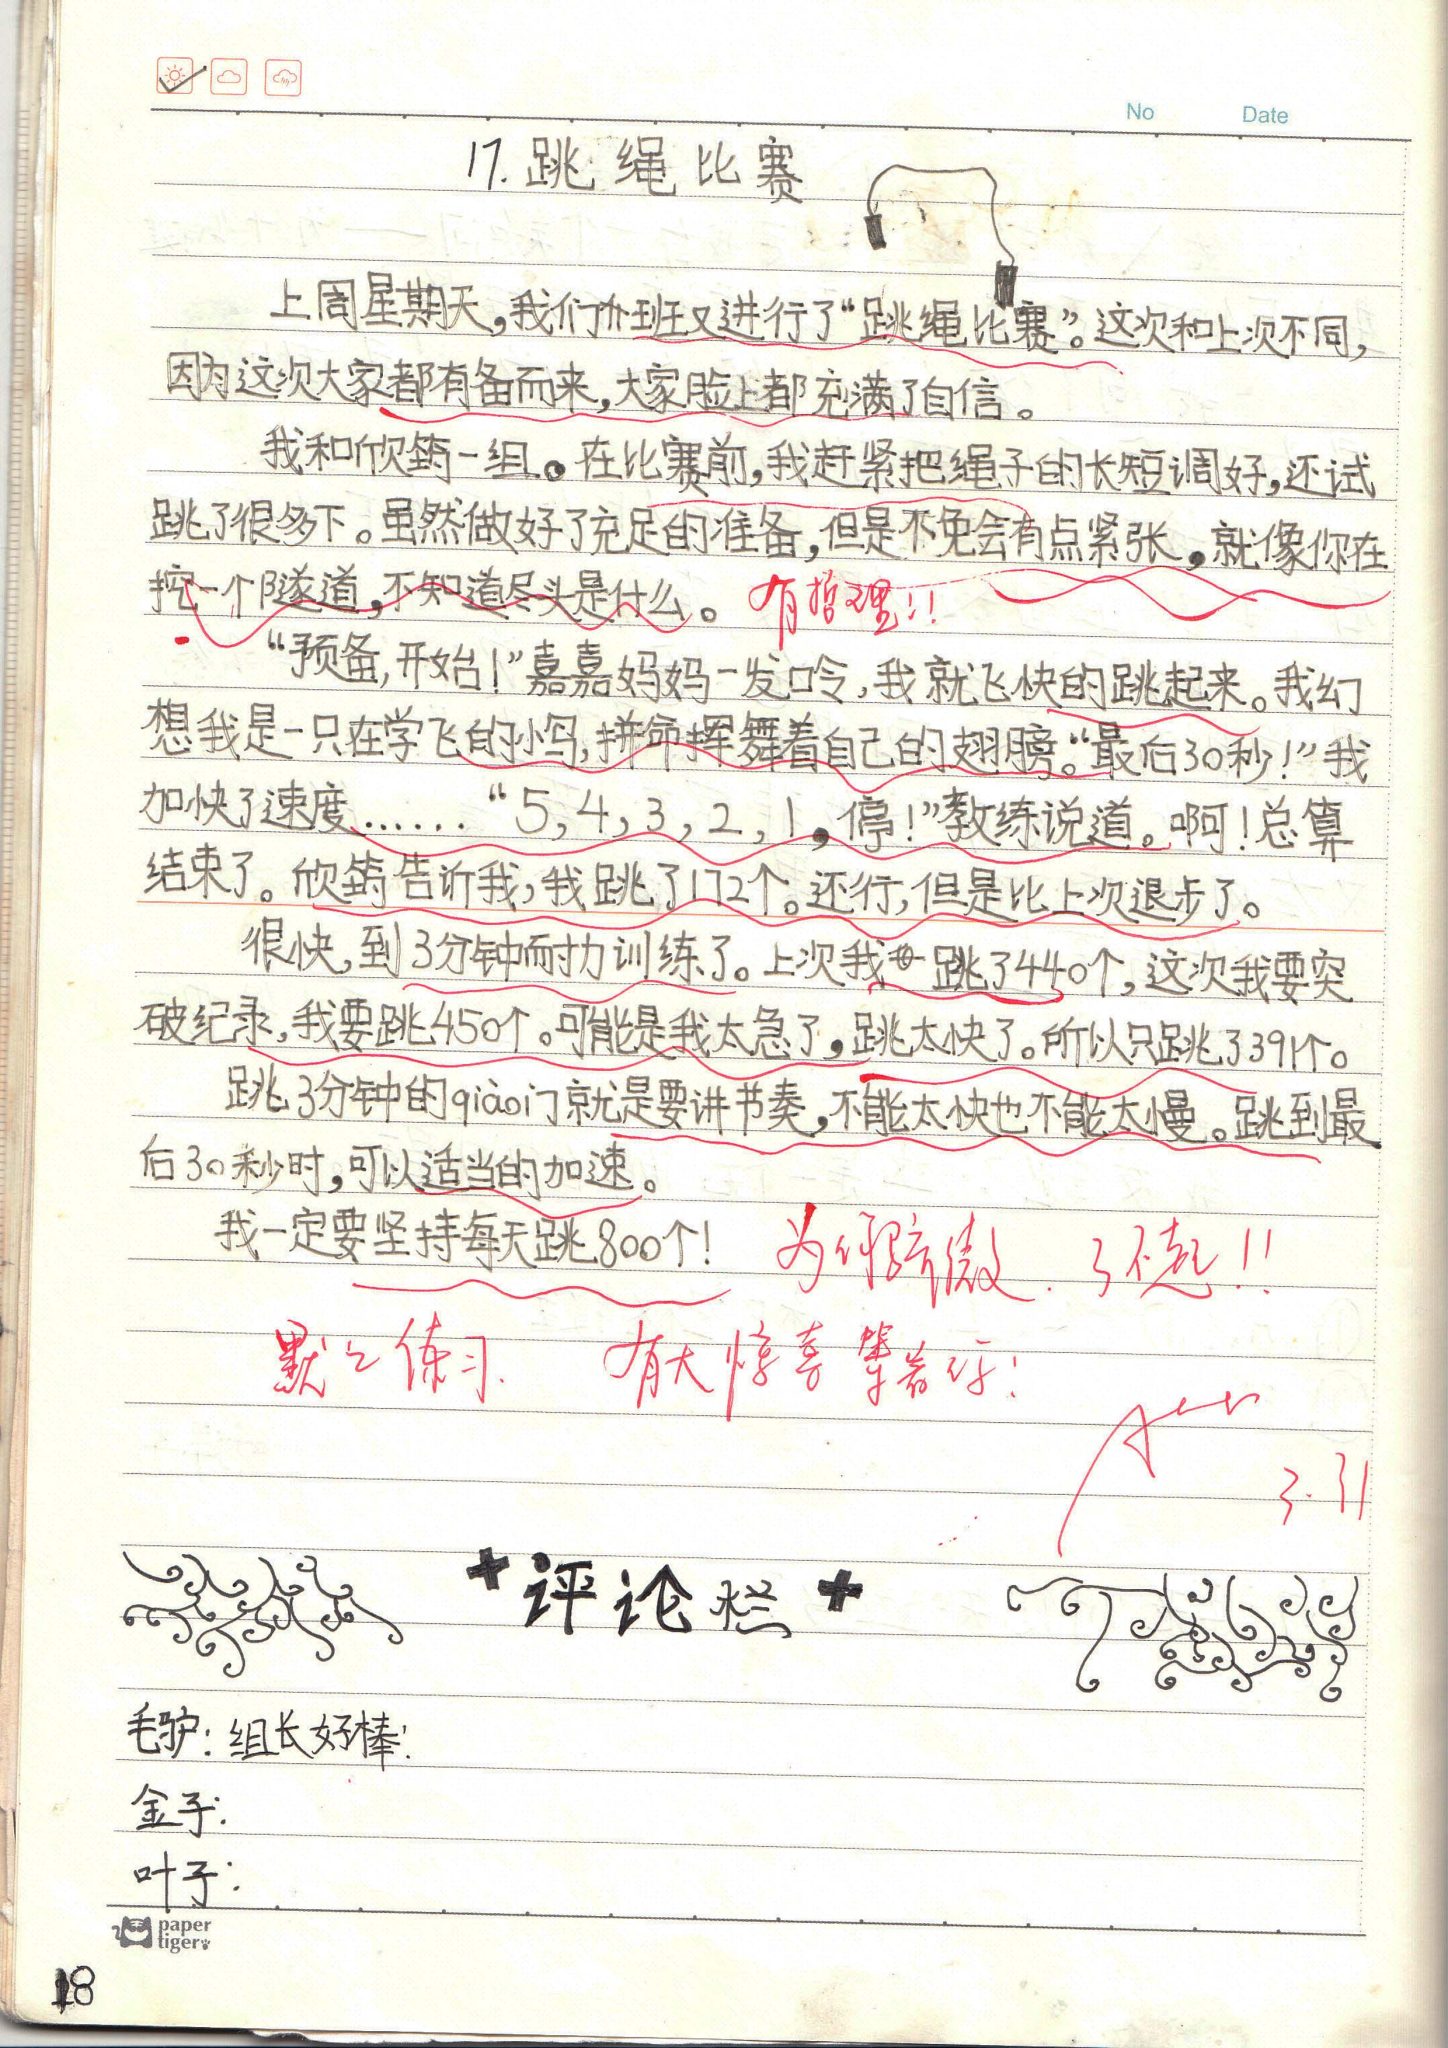 No Date
17. 跳绳比赛
上周星期天，我们班又进行了“跳绳比赛”。这次和上次不同，
因为这次大家都有备而来，大家脸上都充满了自信。
我和欣筠一组。在比赛前，我赶紧把绳子的长短调好，还试
跳了很多下。虽然做好了充足的准备，但是不免会有点紧张，就像你在
挖一个隧道，不知道尽头是什么。 有哲理!!
“预备，开始！”嘉嘉妈妈一发口令，我就飞快的跳起来。我幻
想我是一只在学飞的小鸟，拼命挥舞着自己的翅膀。“最后30秒！”我
加快了速度……“5，4，3，2，1，停！”教练说道。啊！总算
结束了。欣筠告诉我，我跳了172个。还行，但是比上次退步了。
很快，到3分钟耐力训练了。上次我跳了440个，这次我要突
破纪录，我要跳450个。可能是我太急了，跳太快了。所以只跳了391个。
跳3分钟的qiào门就是要讲节奏，不能太快也不能太慢。跳到最
后30秒时，可以适当的加速。
我一定要坚持每天跳800个！ 为你骄傲. 了不起!!
默默练习. 有大惊喜等着你!
A
3.31
评论栏
毛驴：组长好棒！
金子：
叶子：
paper
tiger
18